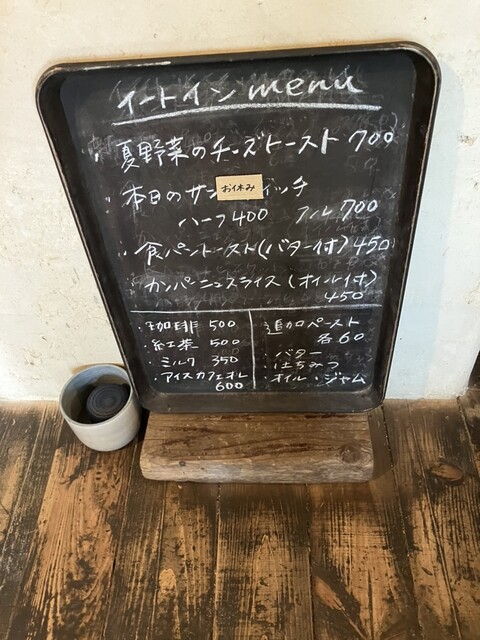 イートイン menu
・夏野菜のチーズトースト 700
・本日のサンお休みイッチ
ハーフ400 フル700
・食パントースト(バター付)450
・カンパーニュスライス(オイル付)
450
・珈琲 500
・紅茶 500
・ミルク 350
・アイスカフェオレ
600
追加ペースト
各60
・バター
・はちみつ
・オイル・ジャム